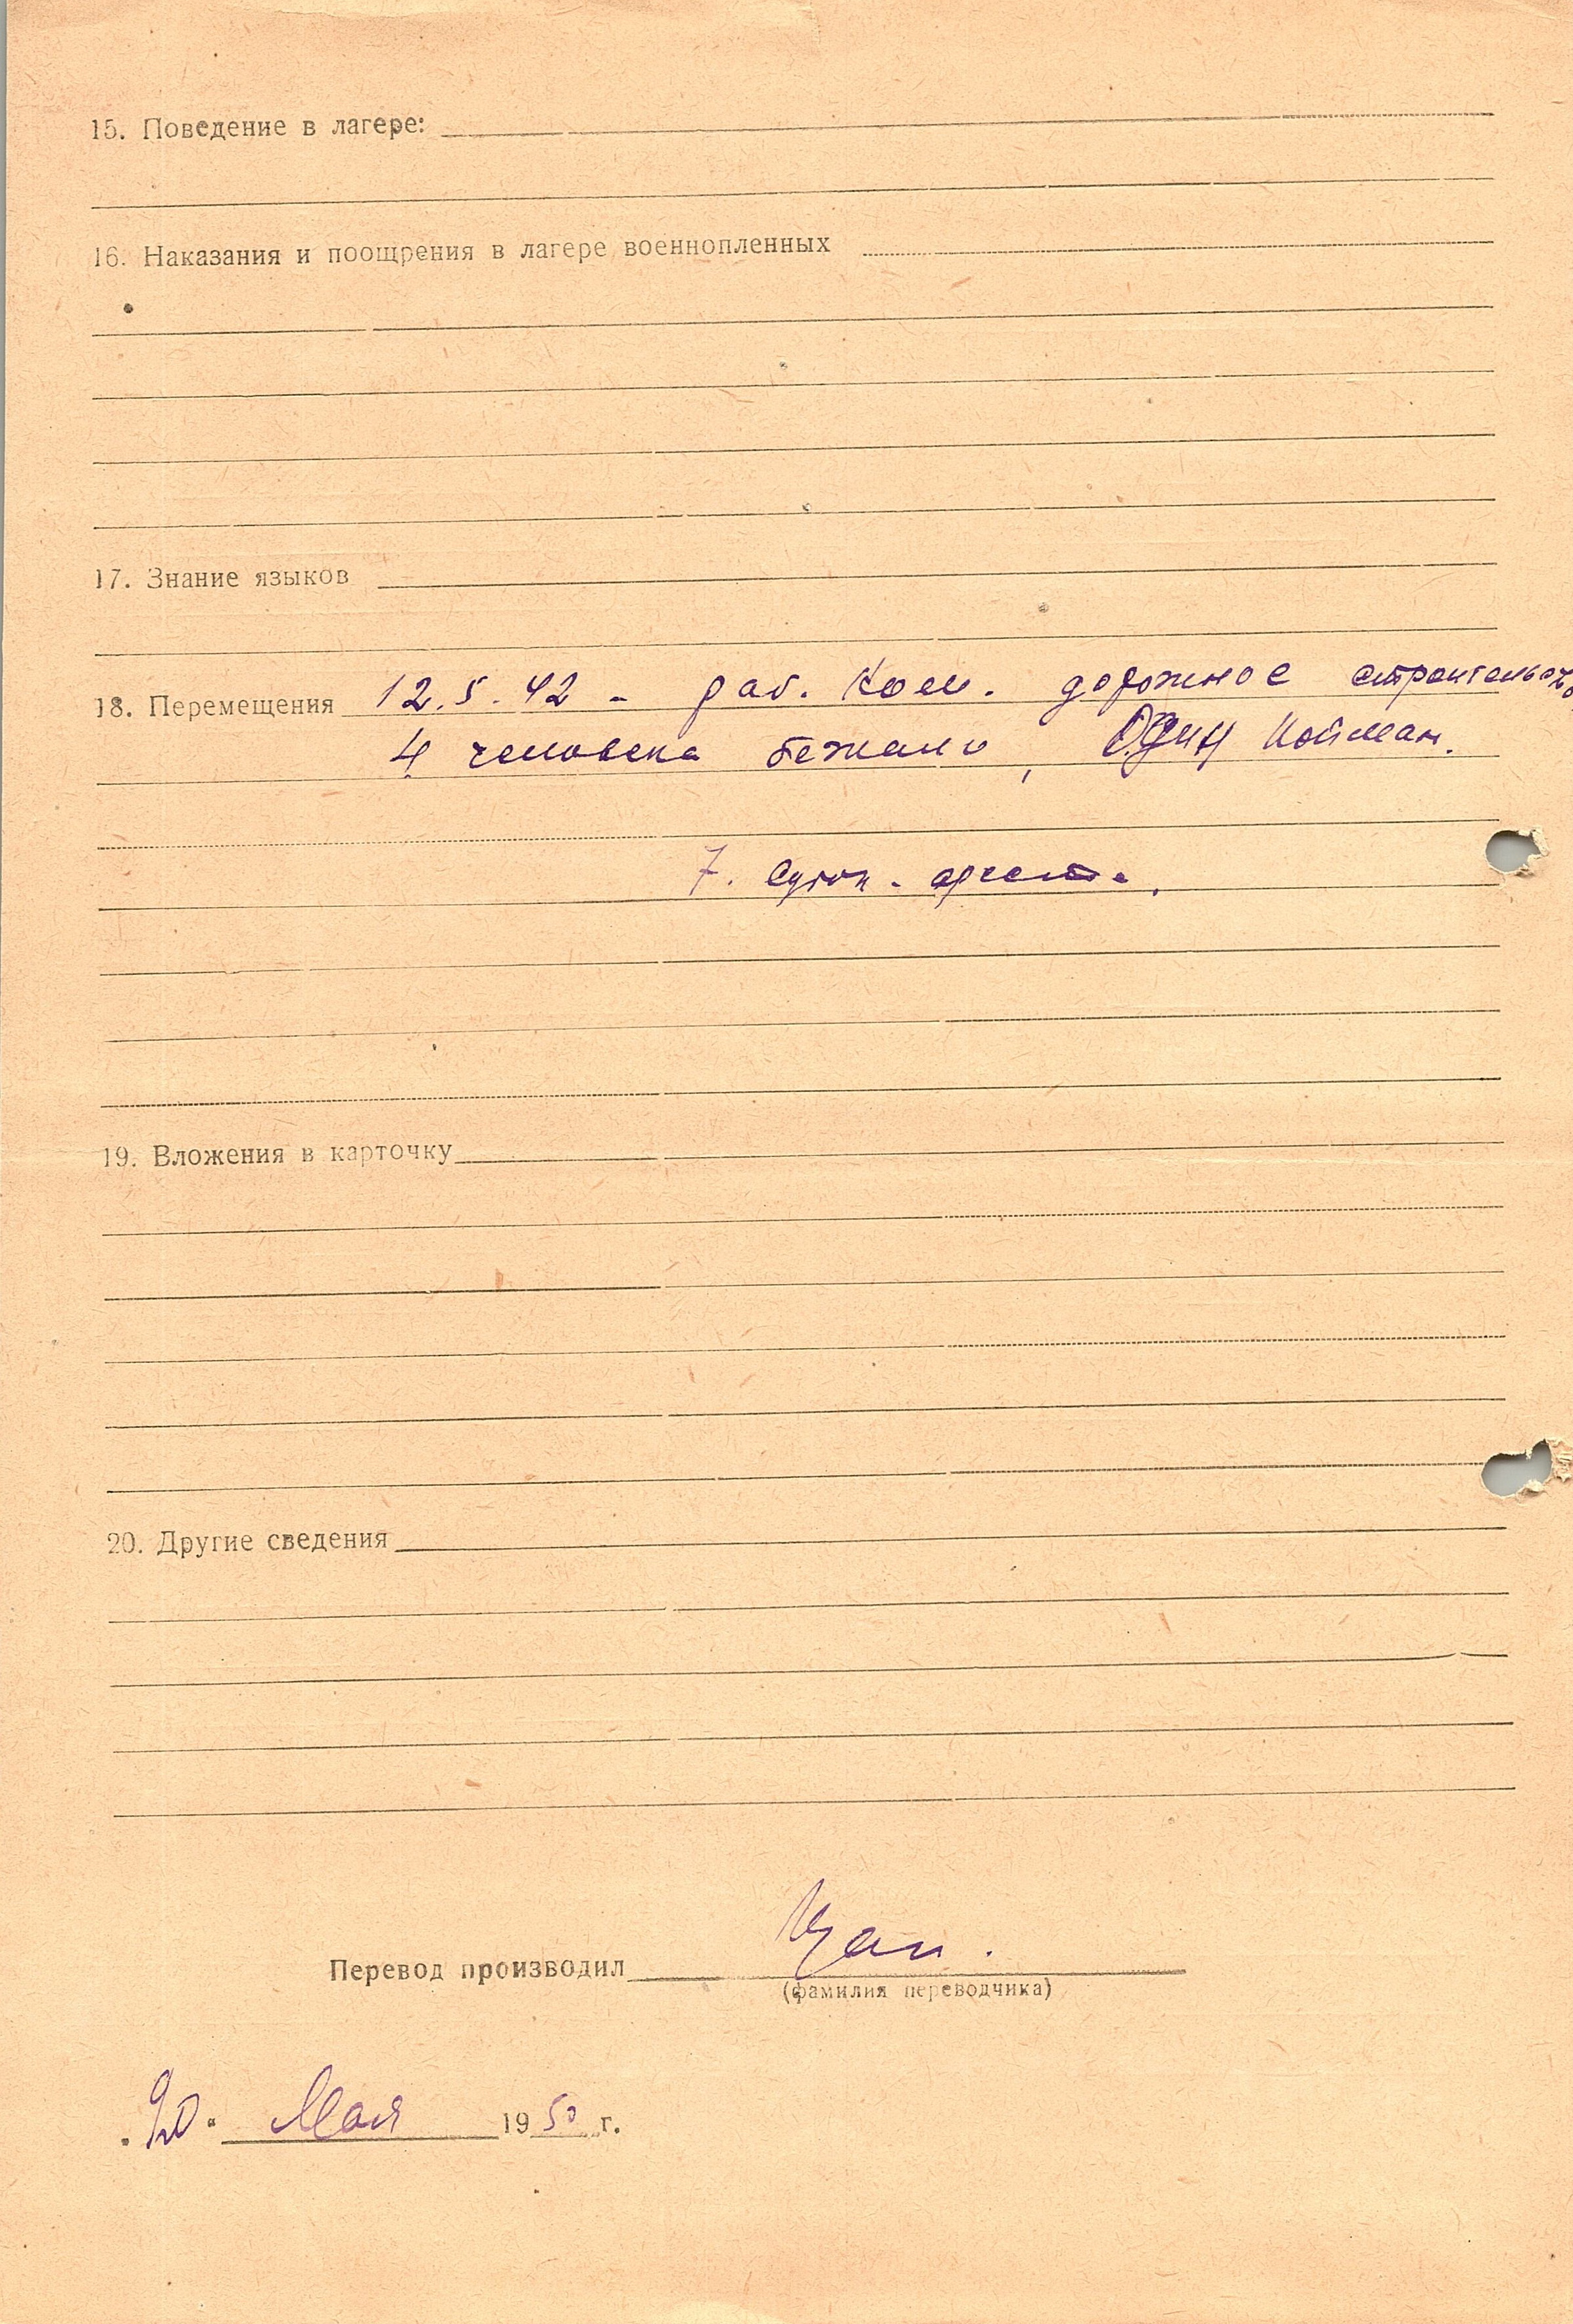 15. Поведение в лагере:
16. Наказания и поощрения в лагере военнопленных
17. Знание языков
18. Перемещения 12.5.42 - раб. ком. дорожное строительство
4 человека бежало, один пойман.
7. суток - ареста.
19. Вложения в карточку
20. Другие сведения
Перевод производил
(фамилия переводчика)
"20" Мая 1950 г.